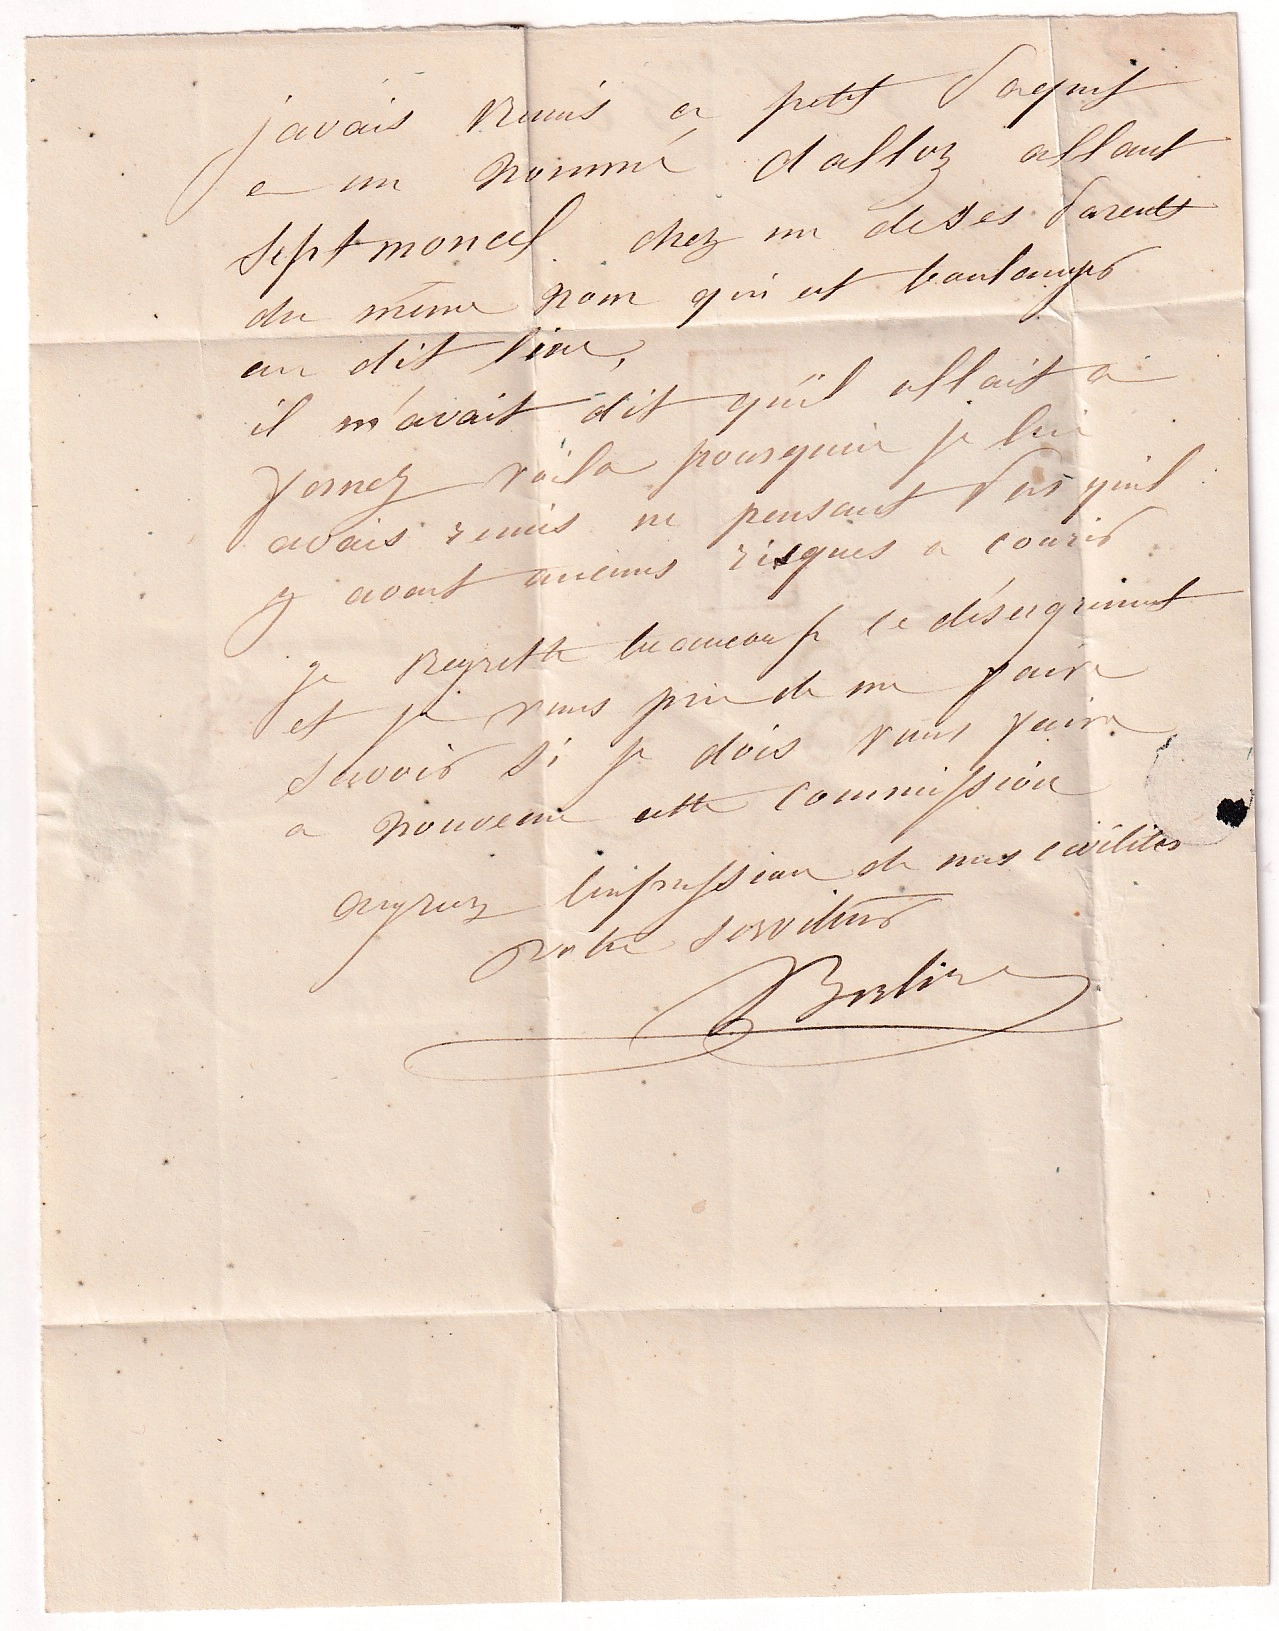 javais Remis ce petit Paquet
a un nommé dalloz allant
Septmoncel chez un de ses Parents
du même nom qui est boulanger
au dit lieu,
il m'avait dit qu'il allait à
voila pourquoi je lui
avais remis ne pensant Pas quil
y avait aucuns risques a courir
je Regrette beaucoup ce désagrément
et je vous prie de me faire
savoir si je dois vous faire
a nouveau cette Commission
agreez de mes civilités
votre serviteur